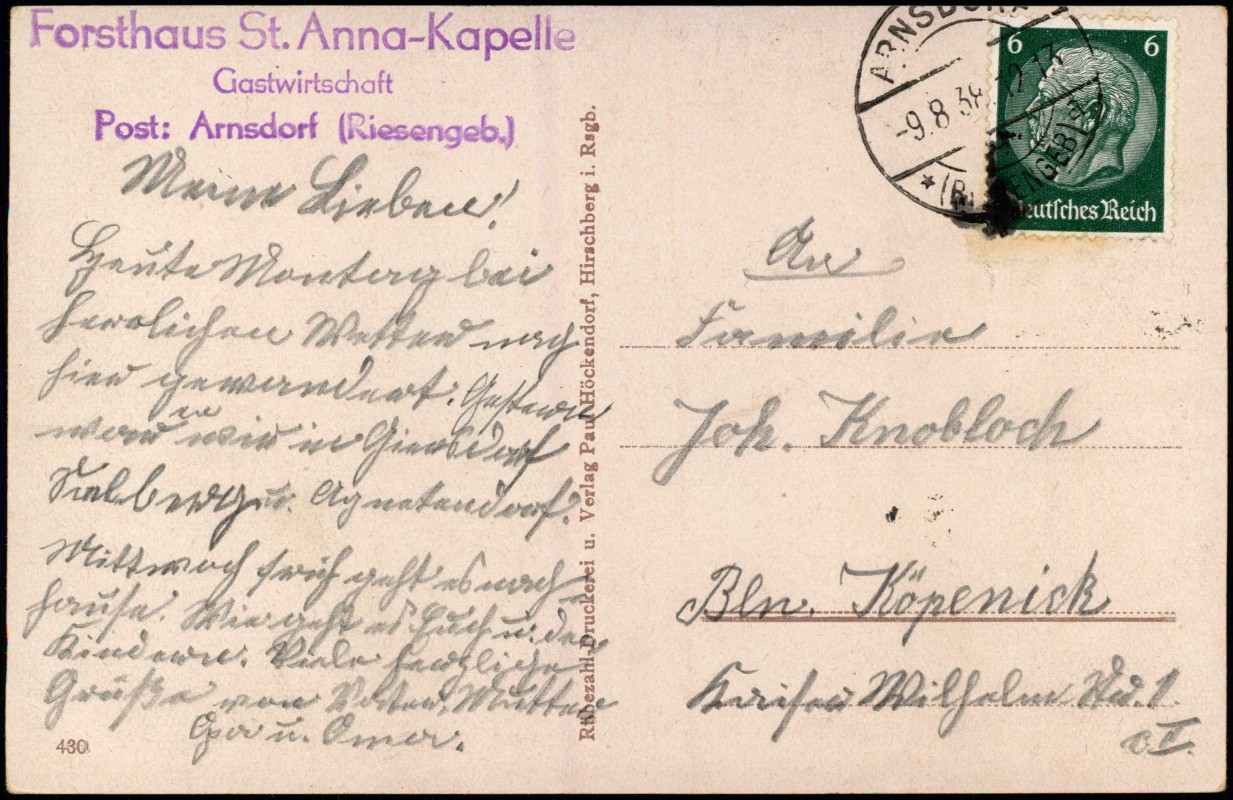 Forsthaus St. Anna-Kapelle
Gastwirtschaft
Post: Arnsdorf (Riesengeb.)
Meine Lieben!
Heute Montag bei
herrlichen Wetter nach
hier gewandert. Gestern
waren wir in Giersdorf
Saalberg u. Agnetendorf.
Mittwoch früh geht es nach
hause. Wie geht es Euch u. den
Kindern. Viele herzliche
Grüße von Vater, Mutter
Opa u. Oma.
430
Rübezahl-Druckerei u. Verlag Paul Höckendorf, Hirschberg i. Rsgb.
ARNSDORF
-9.8.38.
(RIESENGEB)
6 6
Deutsches Reich
An
Familie
Joh. Knobloch
Bln. Köpenick
Kaiser Wilhelm Str. 1.